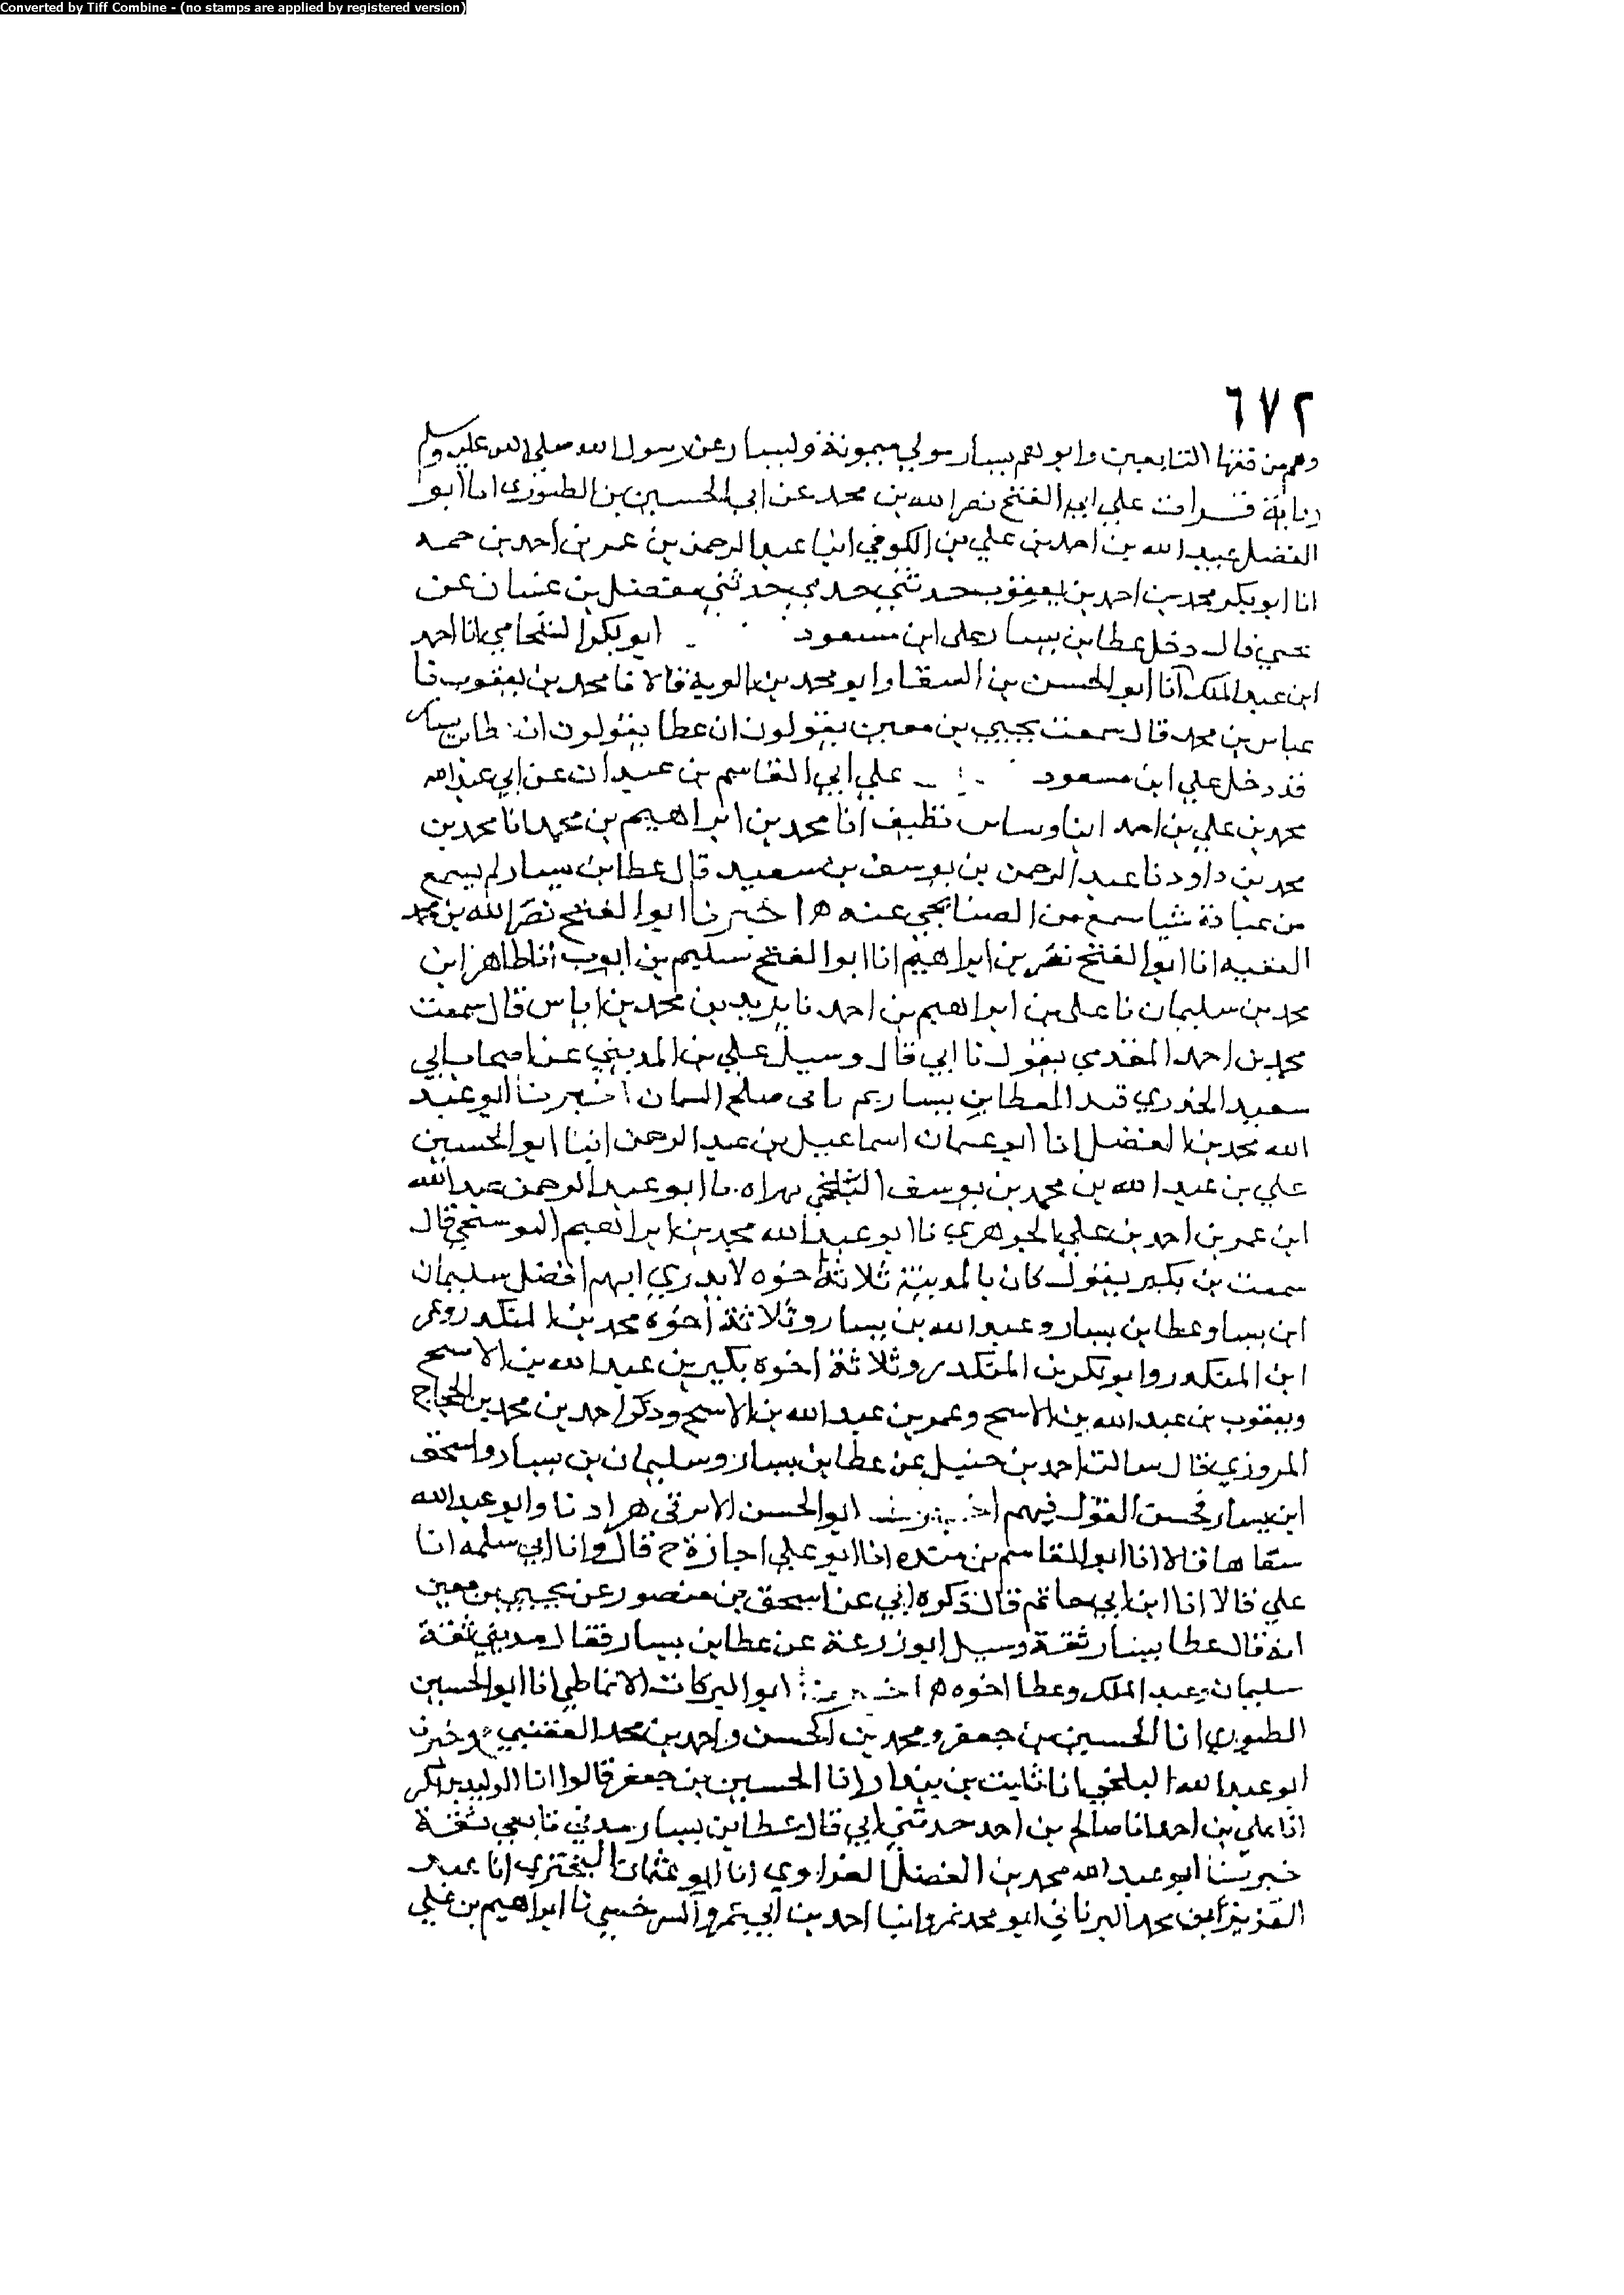 Converted by Tiff Combine - (no stamps are applied by registered version)
٦٧٢
وهم من فقها التابعين وابوهم يسار مولي ميمونة وليسار عن رسول الله صلي الله عليه وسلم
رواية قرات علي ابي الفتح نصر الله بن محمد عن ابي الحسين بن الطيوري انا ابو
الفضل عبيد الله بن احمد بن علي بن الكوفي انبا عبد الرحمن بن عمر بن احمد بن حمه
انا ابو بكر محمد بن احمد بن يعقوب حدثني جدي حدثني مفضل بن غسان عن
يحيي قال دخل عطا بن يسار على ابن مسعود ابو بكر الشحامي انا احمد
ابن عبد الملك انا ابو الحسن بن السقا وابو محمد بن بالوية قالا نا محمد بن يعقوب نا
عباس بن محمد قال سمعت يحيي بن معين يقولون ان عطا يقولون ان عطا بن يسار
قد دخل علي ابن مسعود علي ابي القاسم بن عبدان عن ابي عبد الله
محمد بن علي بن احمد انبا نظيف انا محمد بن ابراهيم بن محمد انا محمد بن
محمد بن داود نا عبد الرحمن بن يوسف بن سعيد قال عطا بن يسار لم يسمع
من عبادة شيا سمع من الصنابحي عنه ه اخبرنا ابو الفتح نصر الله بن محمد
الفقيه انا ابو الفتح نصر بن ابراهيم انا ابو الفتح سليم بن ايوب انا طاهر ابن
محمد بن سليمان نا علي بن ابراهيم بن احمد نا يزيد بن محمد بن اياس قال سمعت
محمد بن احمد المقدمي يقول نا ابي قال وسيل علي بن المديني عن اصحاب ابي
سعيد الخدري قد العطا بن يسار ثم صلح السمان اخبرنا ابو عبد
الله محمد بن الفضل انا ابو عمان اسماعيل بن عبد الرحمن انبا ابو الحسين
علي بن عبد الله بن محمد بن يوسف البلخي بهراه نا ابو عبد الرحمن عبد الله
ابن عمر بن احمد بن علي الجوهري نا ابو عبد الله محمد بن ابراهيم البوسنجي قال
سمعت بن بكير يقول كان بالمدينة ثلاثة اخوه لا يدري ايهم افضل سليمان
ابن يسار وعطا بن يسار وعبد الله بن يسار وثلاثة اخوه محمد بن المنكدر وعمر
ابن المنكدر وابو بكر بن المنكدر وثلاثة اخوه بكير بن عبد الله بن الاسج
ويعقوب بن عبد الله بن الاسج وعمر بن عبد الله بن الاسج وذكر احمد بن محمد بن الحجاج
المروزي قال سالت احمد بن حنبل عن عطا بن يسار وسليمان بن يسار واسحق
ابن يسار فحسن القول فيهم ابو الحسن الابرقوهي اذنا وابو عبد الله
شفاها قالا انا ابو القاسم بن منده انا ابو علي اجازة ح قال وانا ابي سلمه انا
علي قالا انا ابن ابي حاتم قال ذكره ابي عن اسحق بن منصور عن يحيي بن معين
انه قال عطا بن يسار ثقة وسيل ابو زرعة عن عطا بن يسار فقال مديني ثقة
سليمان وعبد الملك وعطا اخوه ه اخبرنا ابو البركات الانماطي انا ابو الحسين
الطيوري انا الحسين بن جعفر ومحمد بن الحسن واحمد بن محمد العتيقي ح واخبرنا
ابو عبد الله البلخي انا ثابت بن بندار انا الحسين بن جعفر قالوا انا الوليد بن بكر
انا علي بن احمد انا صالح بن احمد حدثني ابي قال عطا بن يسار مدني تابعي ثقة
خبرنا ابو عبد الله محمد بن الفضل الفراوي انا ابو عثمان البختري انا عبد
العزيز ابن محمد ابو محمد انبا احمد بن السرخسي نا ابراهيم بن علي